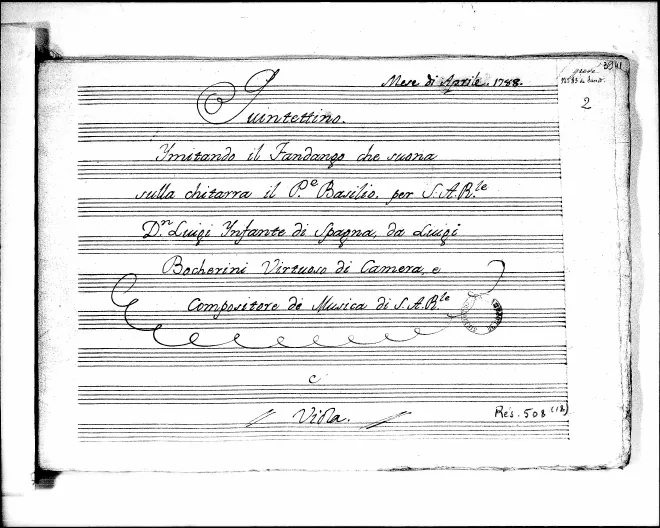 3941
Mese di Aprile. 1788.
2
Quintettino.
Ymitando il Fandango che suona
sulla chitarra il P.e Basilio. per S. A. R.le
D.n Luigi Infante di Spagna, da Luigi
Bocherini Virtuoso di Camera, e
Compositore de Musica di S. A. R.le
C
Viola.
Rés. 508 (18)